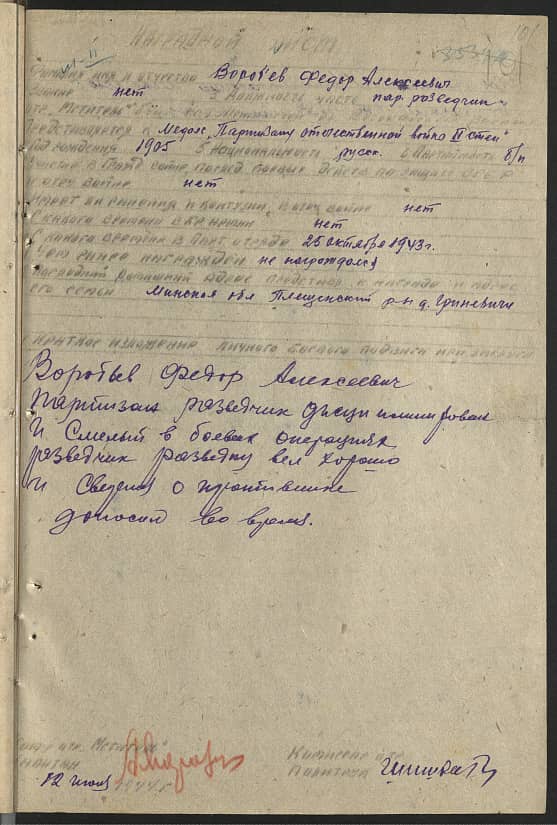 101
НАГРАДНОЙ ЛИСТ
Фамилия имя и отчество Воробьев Федор Алексеевич
звание нет 3 Должность часть пар. разведчик
отр. "Мститель"
Представляется к Медали "Партизану отечественной войны II степ"
Год рождения 1905 5 Национальность русск. 6 Партийность б/п
Участие в гражд войне, послед боевых действ по защите СССР
и отеч войне нет
Имеет ли ранения и контузии в отеч войне нет
С какого времени в КРА армии нет
С какого времени в Парт. отряде 25 октября 1943 г.
Чем ранее награжден не награждался
домашний адрес представ. к награде и адрес
его семьи Минская обл Плещенский р-н д. Гриневичи
Краткое изложение личного боевого подвига или заслуги
Воробьев Федор Алексеевич
партизан разведчик дисциплинирован
и Смелый в боевых операциях
разведчик разведку вел хорошо
и Сведения о противнике
доносил во время.
отр. Мститель"
Капитан
Комиссар отр.
Политрук
12 июля 1944 г